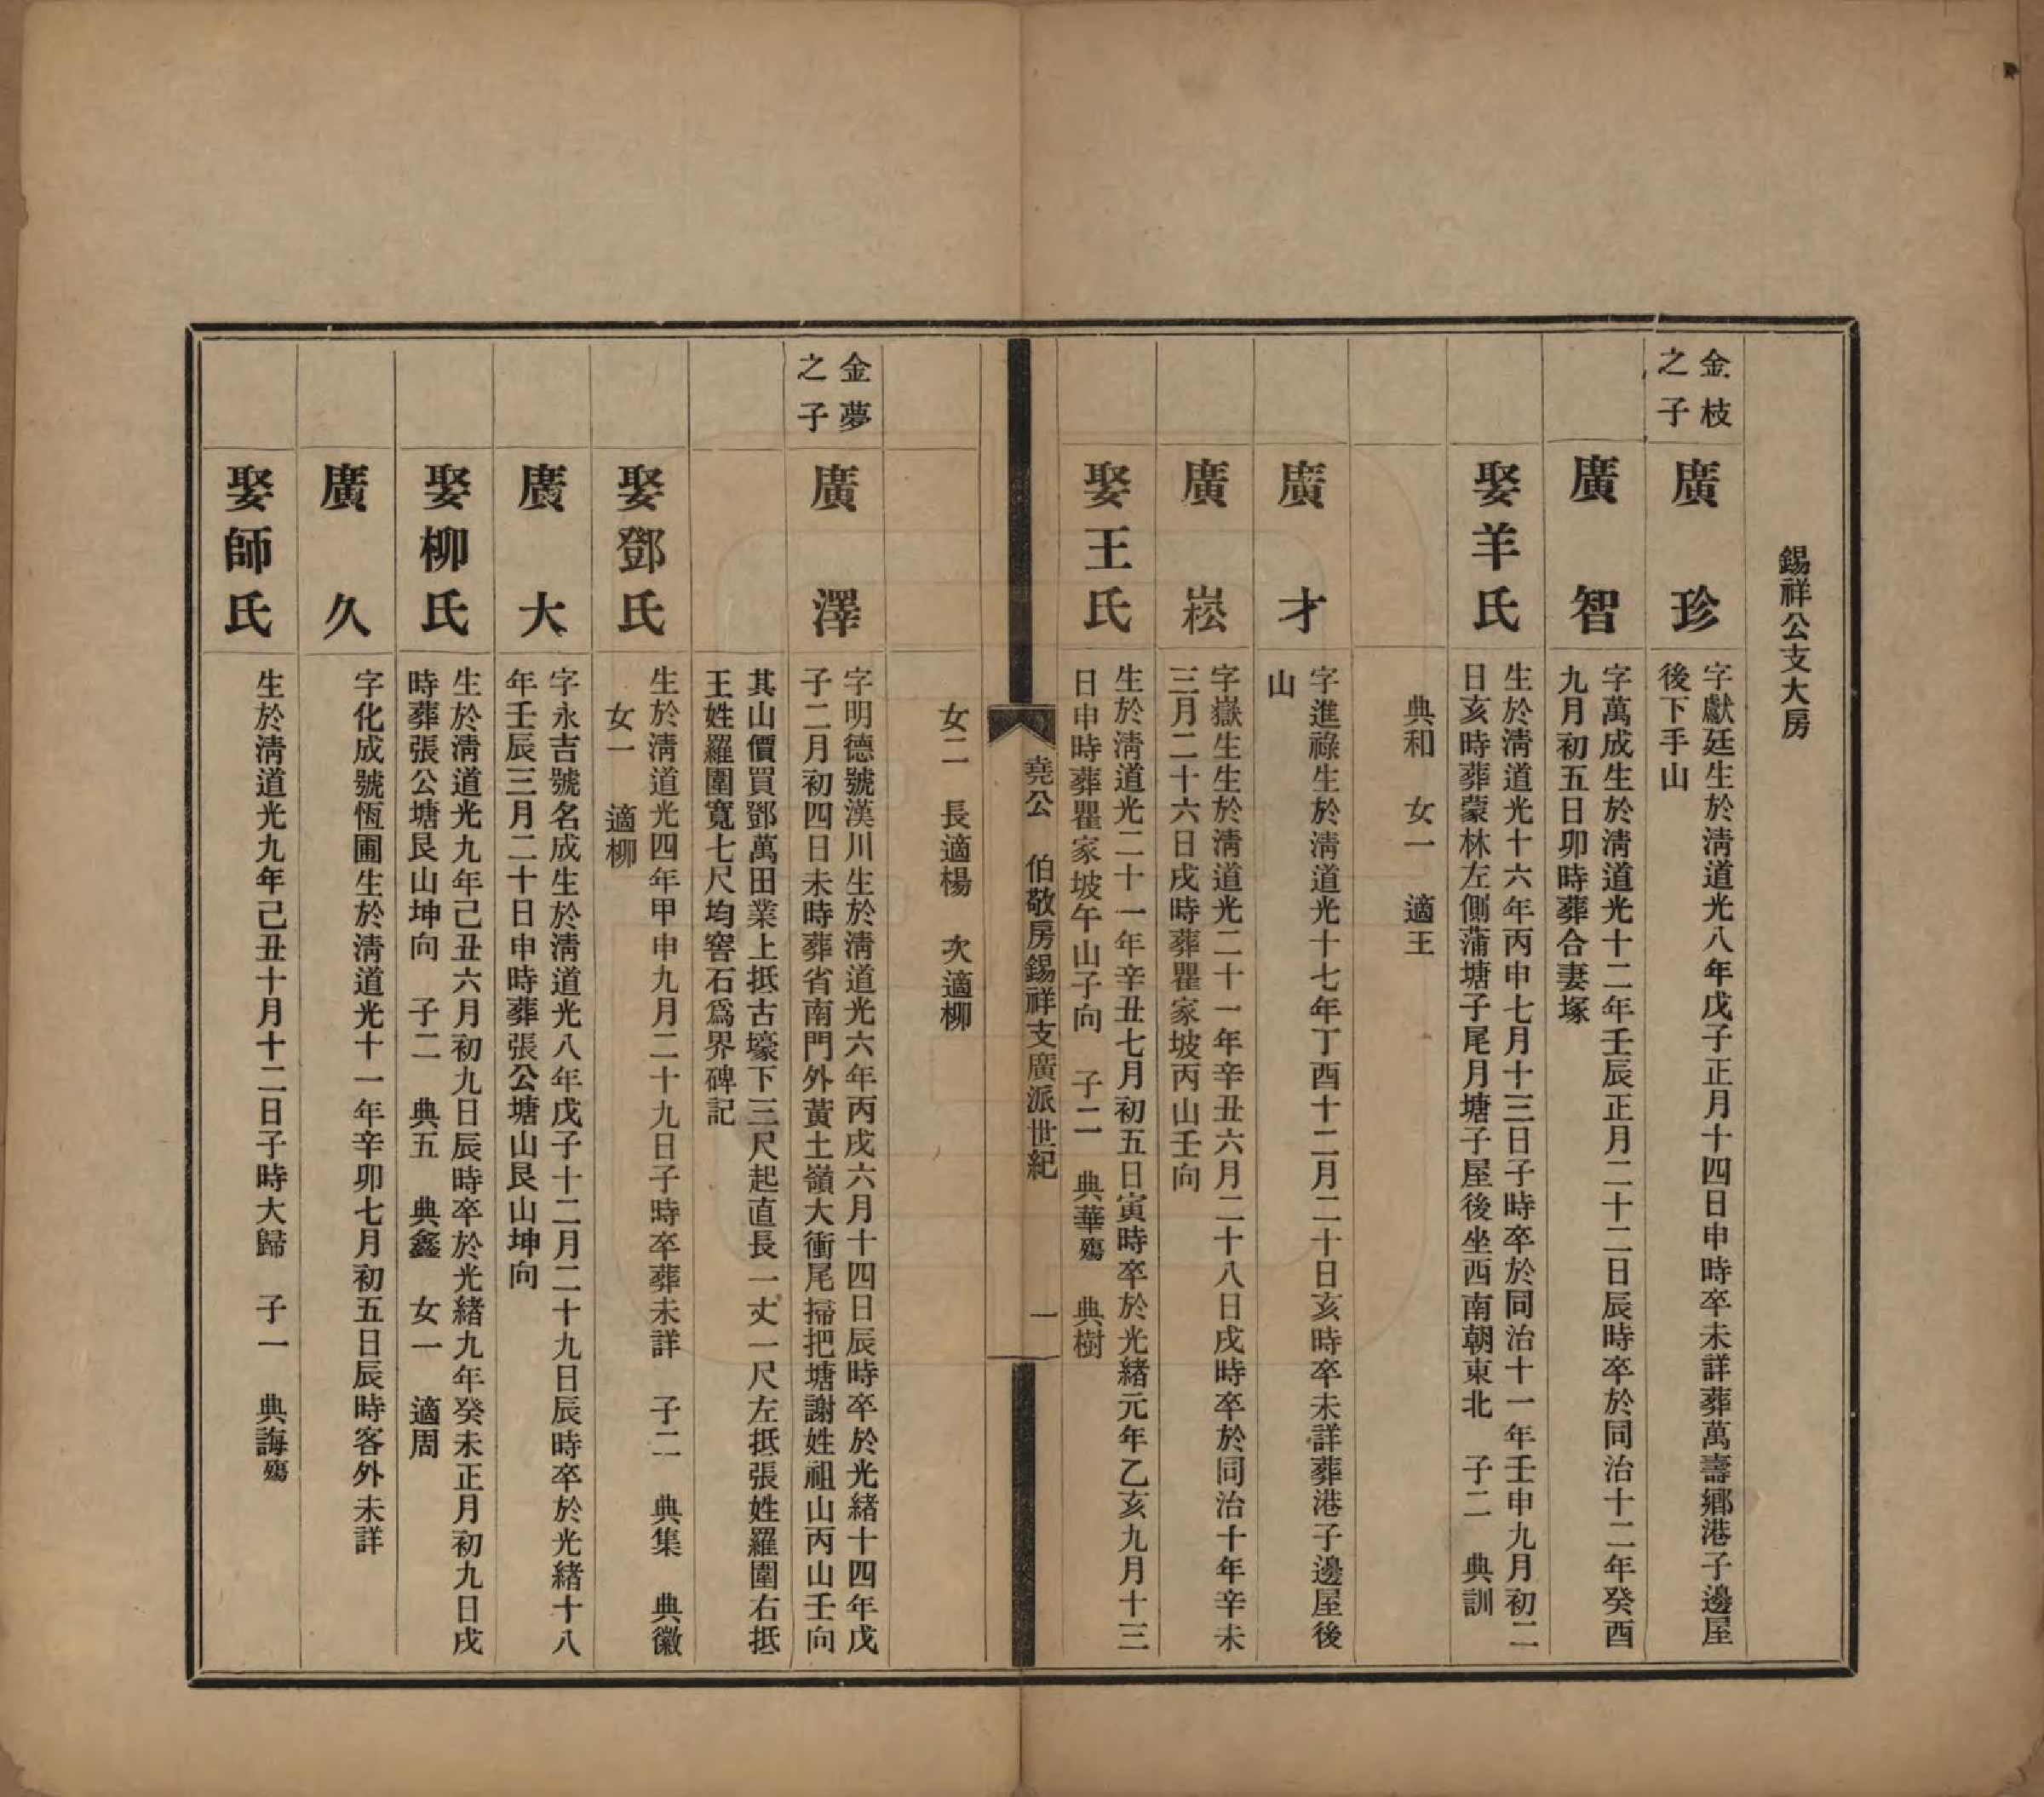 錫祥公支大房
金枝
之子
廣珍
字獻廷生於清道光八年戊子正月十四日申時卒未詳葬萬壽鄉港子邊屋
後下手山
廣智
字萬成生於清道光十二年壬辰正月二十二日辰時卒於同治十二年癸酉
九月初五日卯時葬合妻塚
娶羊氏
生於清道光十六年丙申七月十三日子時卒於同治十一年壬申九月初二
日亥時葬蒙林左側蒲塘子尾月塘子屋後坐西南朝東北 子二 典訓
典和 女一 適王
廣才
字進祿生於清道光十七年丁酉十二月二十日亥時卒未詳葬港子邊屋後
山
廣崧
字嶽生生於清道光二十一年辛丑六月二十八日戌時卒於同治十年辛未
三月二十六日戌時葬瞿家坡丙山壬向
娶王氏
生於清道光二十一年辛丑七月初五日寅時卒於光緒元年乙亥九月十三
日申時葬瞿家坡午山子向 子二 典華殤 典樹
堯公 伯敬房錫祥支廣派世紀 一
女二 長適楊 次適柳
金夢
之子
廣澤
字明德號漢川生於清道光六年丙戌六月十四日辰時卒於光緒十四年戊
子二月初四日未時葬省南門外黃土嶺大衝尾掃把塘謝姓祖山丙山壬向
其山價買鄧萬田業上抵古壕下三尺起直長一丈一尺左抵張姓羅圍右抵
王姓羅圍寬七尺均窖石爲界碑記
娶鄧氏
生於清道光四年甲申九月二十九日子時卒葬未詳 子二 典集 典徽
女一 適柳
廣大
字永吉號名成生於清道光八年戊子十二月二十九日辰時卒於光緒十八
年壬辰三月二十日申時葬張公塘山艮山坤向
娶柳氏
生於清道光九年己丑六月初九日辰時卒於光緒九年癸未正月初九日戌
時葬張公塘艮山坤向 子二 典五 典鑫 女一 適周
廣久
字化成號恆圃生於清道光十一年辛卯七月初五日辰時客外未詳
娶師氏
生於清道光九年己丑十月十二日子時大歸 子一 典誨殤